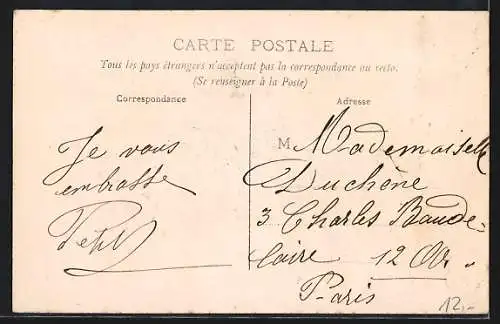 CARTE POSTALE
Tous les pays étrangers n'acceptent pas la correspondance au recto.
(Se renseigner à la Poste)
Correspondance
Adresse
Je vous
embrasse
M Mademoiselle
Duchêne
3 Charles Baude-
laire 12
Paris
12.-